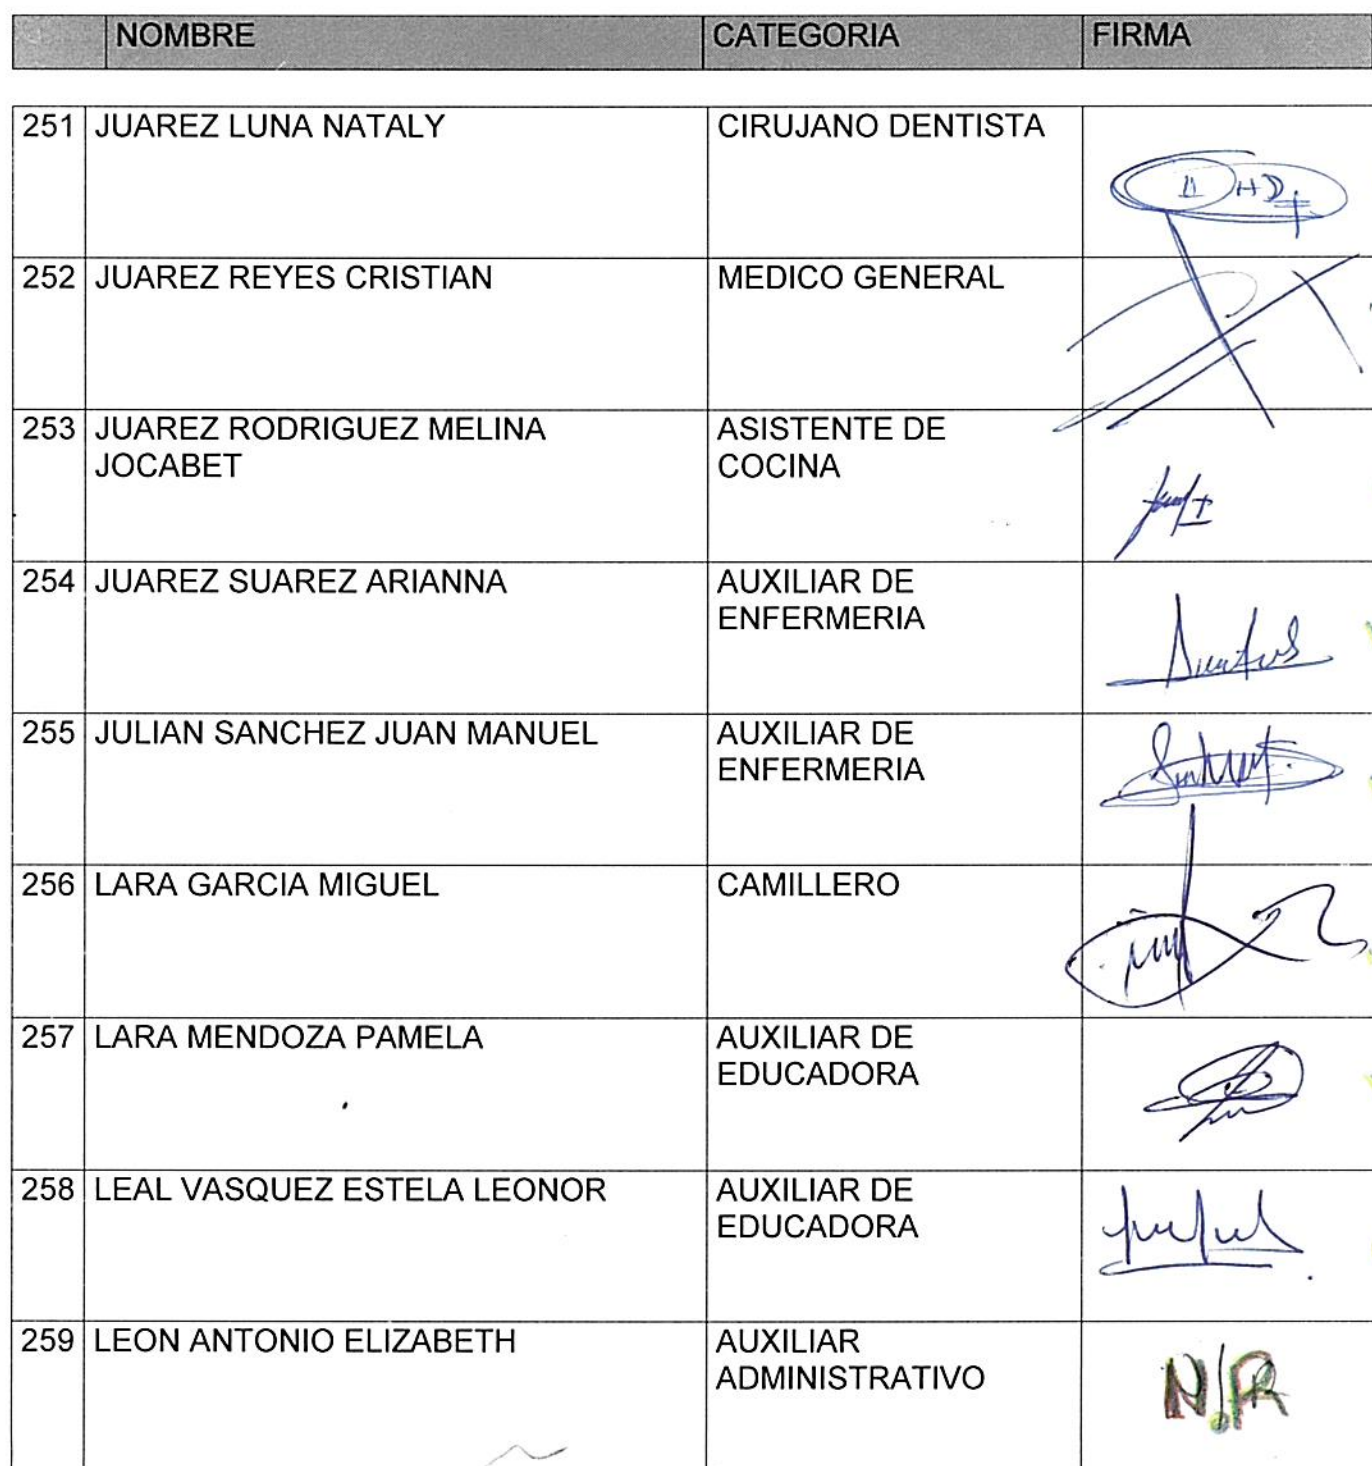 NOMBRE CATEGORIA FIRMA
251 JUAREZ LUNA NATALY CIRUJANO DENTISTA
252 JUAREZ REYES CRISTIAN MEDICO GENERAL
253 JUAREZ RODRIGUEZ MELINA ASISTENTE DE
JOCABET COCINA
254 JUAREZ SUAREZ ARIANNA AUXILIAR DE
ENFERMERIA
255 JULIAN SANCHEZ JUAN MANUEL AUXILIAR DE
ENFERMERIA
256 LARA GARCIA MIGUEL CAMILLERO
257 LARA MENDOZA PAMELA AUXILIAR DE
EDUCADORA
258 LEAL VASQUEZ ESTELA LEONOR AUXILIAR DE
EDUCADORA
259 LEON ANTONIO ELIZABETH AUXILIAR
ADMINISTRATIVO